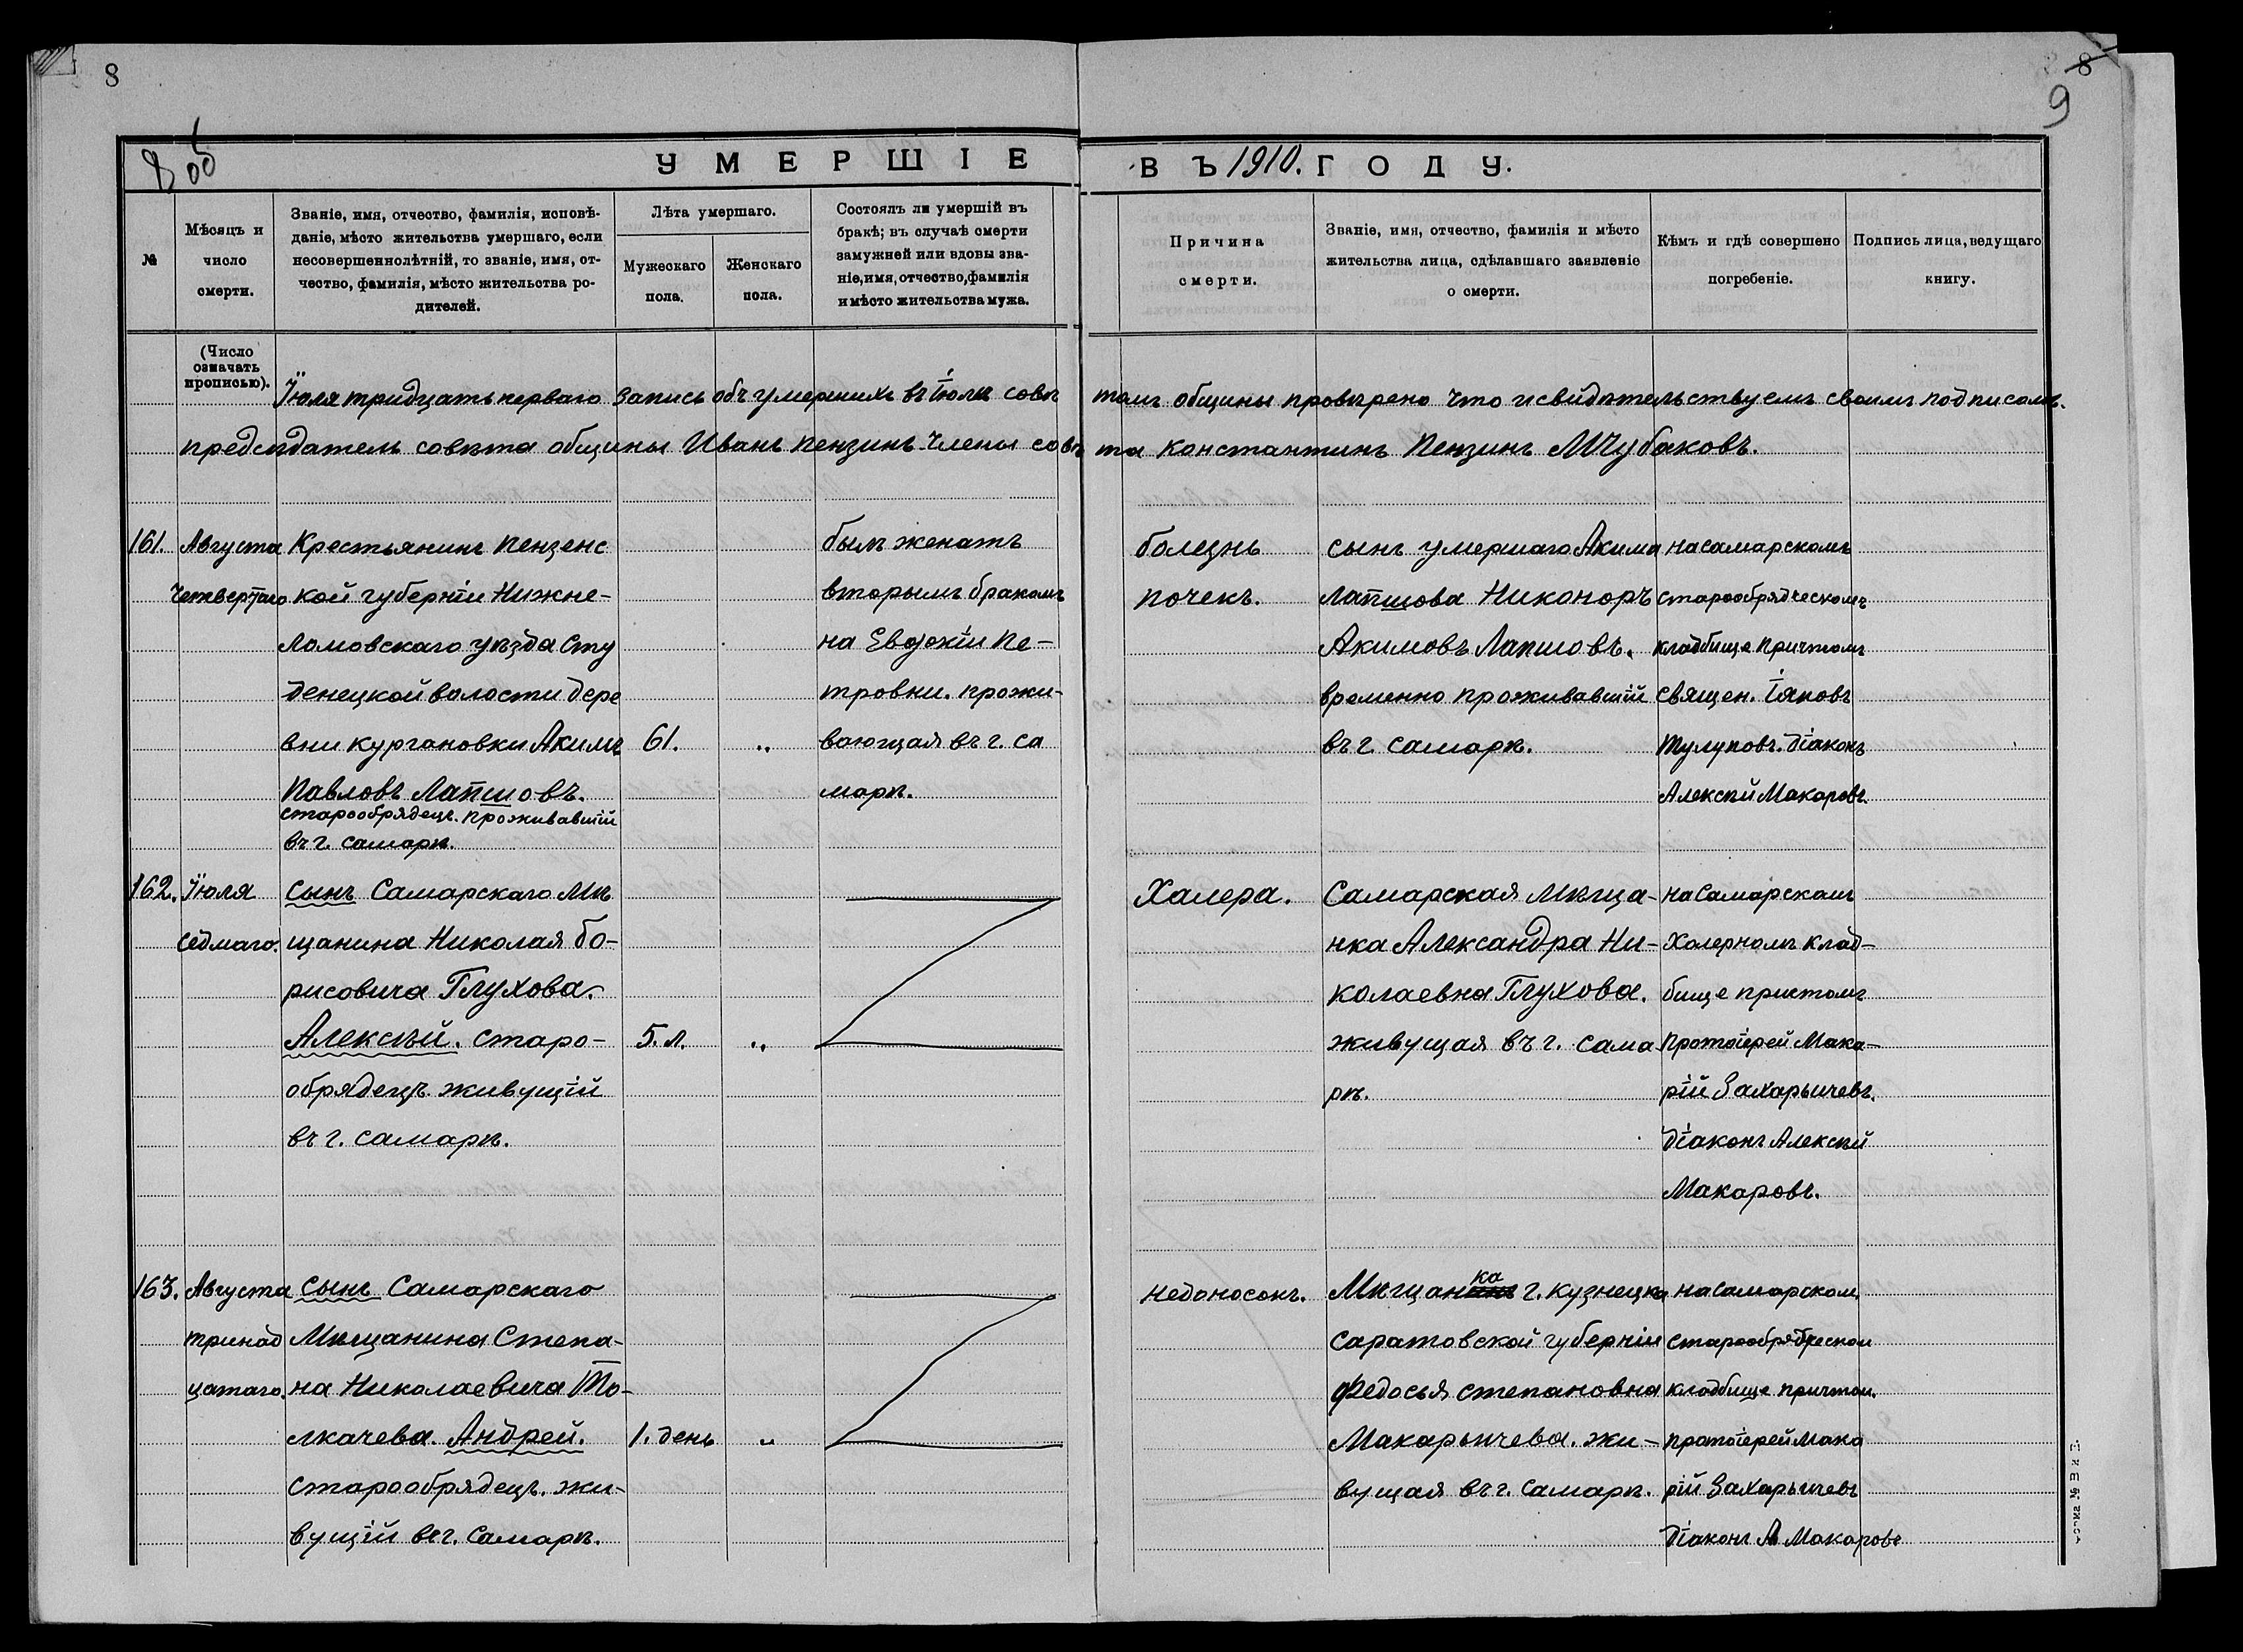 8
8
9
8 об
УМЕРШІЕ ВЪ 1910. ГОДУ.
№
Мѣсяцъ и
число
смерти.
Званіе, имя, отчество, фамилія, исповѣ-
даніе, мѣсто жительства умершаго, если
несовершеннолѣтній, то званіе, имя, от-
чество, фамилія, мѣсто жительства ро-
дителей.
Лѣта умершаго.
Мужескаго
пола.
Женскаго
пола.
Состоялъ ли умершій въ
бракѣ; въ случаѣ смерти
замужней или вдовы зва-
ніе, имя, отчество, фамилія
и мѣсто жительства мужа.
Причина
смерти.
Званіе, имя, отчество, фамилія и мѣсто
жительства лица, сдѣлавшаго заявленіе
о смерти.
Кѣмъ и гдѣ совершено
погребеніе.
Подпись лица, ведущаго
книгу.
(Число
означать
прописью).
Іюля тридцать перваго запись объ умершихъ въ Іюлѣ совѣтомъ общины провѣрено что и свидѣтельствуемъ своимъ подписомъ.
предсѣдатель совѣта общины Иванъ Пензинъ. Члены совѣта Константинъ Пензинъ МЧубаковъ.
161.
Августа
Четвертаго
Крестьянинъ Пензенс
кой губерніи Нижне-
ломовскаго уѣзда Сту
денецкой волости дере
вни Кургановки Акимъ
Павловъ Лапшовъ.
старообрядецъ. проживавшій
въ г. самарѣ.
61.
„
былъ женатъ
вторымъ бракомъ
на Евдокіи Пе-
тровни. прожи-
вающая въ г. Са
марѣ.
болезнь
почекъ.
сынъ умершаго Акима
Лапшова Никоноръ
Акимовъ Лапшовъ.
временно проживавшій
въ г. самарѣ.
на самарскомъ
старообрядческомъ
кладбище причтомъ
священ. Іяковъ
Тулуповъ. Діаконъ
Алексѣй Макаровъ.
162.
Іюля
седмаго.
сынъ Самарскаго мѣ
щанина Николая Бо-
рисовича Глухова.
Алексѣй. старо-
обрядецъ. живущій
въ г. самарѣ.
5. л.
„
Халера.
Самарская мѣща-
нка Александра Ни-
колаевна Глухова.
живущая въ г. сама
рѣ.
на Самарскомъ
Холерномъ клад-
бище приктомъ
протоіерей Мака-
рій Захарычевъ.
Діаконъ Алексѣй
Макаровъ.
163.
Августа
тринад
цатаго.
сынъ Самарскаго
Мѣщанина Степа-
на Николаевича То-
лкачева. Андрей.
старообрядецъ. жи-
вущій въ г. Самарѣ.
1. день
„
Недоносокъ.
Мѣщанка г. Кузнецка
Саратовской губерніи
Федосья степановна
Макарычева. жи-
вущая въ г. Самарѣ.
на самарском.
старообрядческом
кладбище причтом.
протоіерей Мака
рій Захарычевъ
Діаконъ А Макаровъ